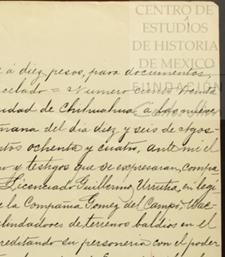 CENTRO DE
ESTUDIOS
DE HISTORIA
DE MEXICO
FUNDACIÓN
é á diez pesos, para documentos,
celado = Numero ciento
udad de Chihuahua, á las nueve
ñana del dia diez y seis de Agos-
ntos ochenta y cuatro, ante mi el
o y testigos que se expresaran, compa
Licenciado Guillermo Urrutia, en legí
e la Compañia Gomez del Campo, Mac
eslindadores de terrenos baldios en el
creditando su personeria con el poder